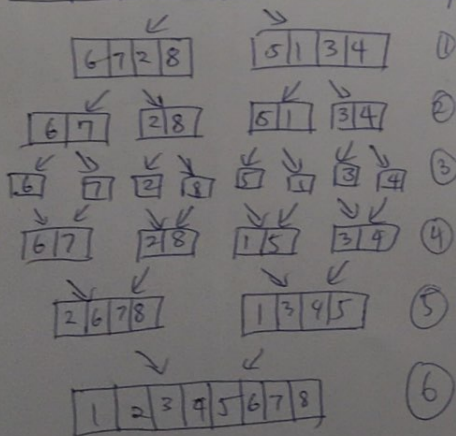 6 7 2 8 5 1 3 4 ①
6 7 2 8 5 1 3 4 ②
6 7 2 8 5 1 3 4 ③
6 7 2 8 1 5 3 4 ④
2 6 7 8 1 3 4 5 ⑤
1 2 3 4 5 6 7 8 ⑥